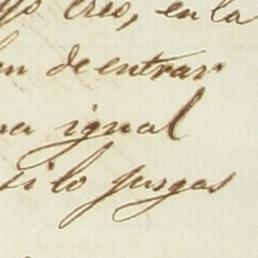 yo creo, en la
de entrar
igual
si lo juzgas